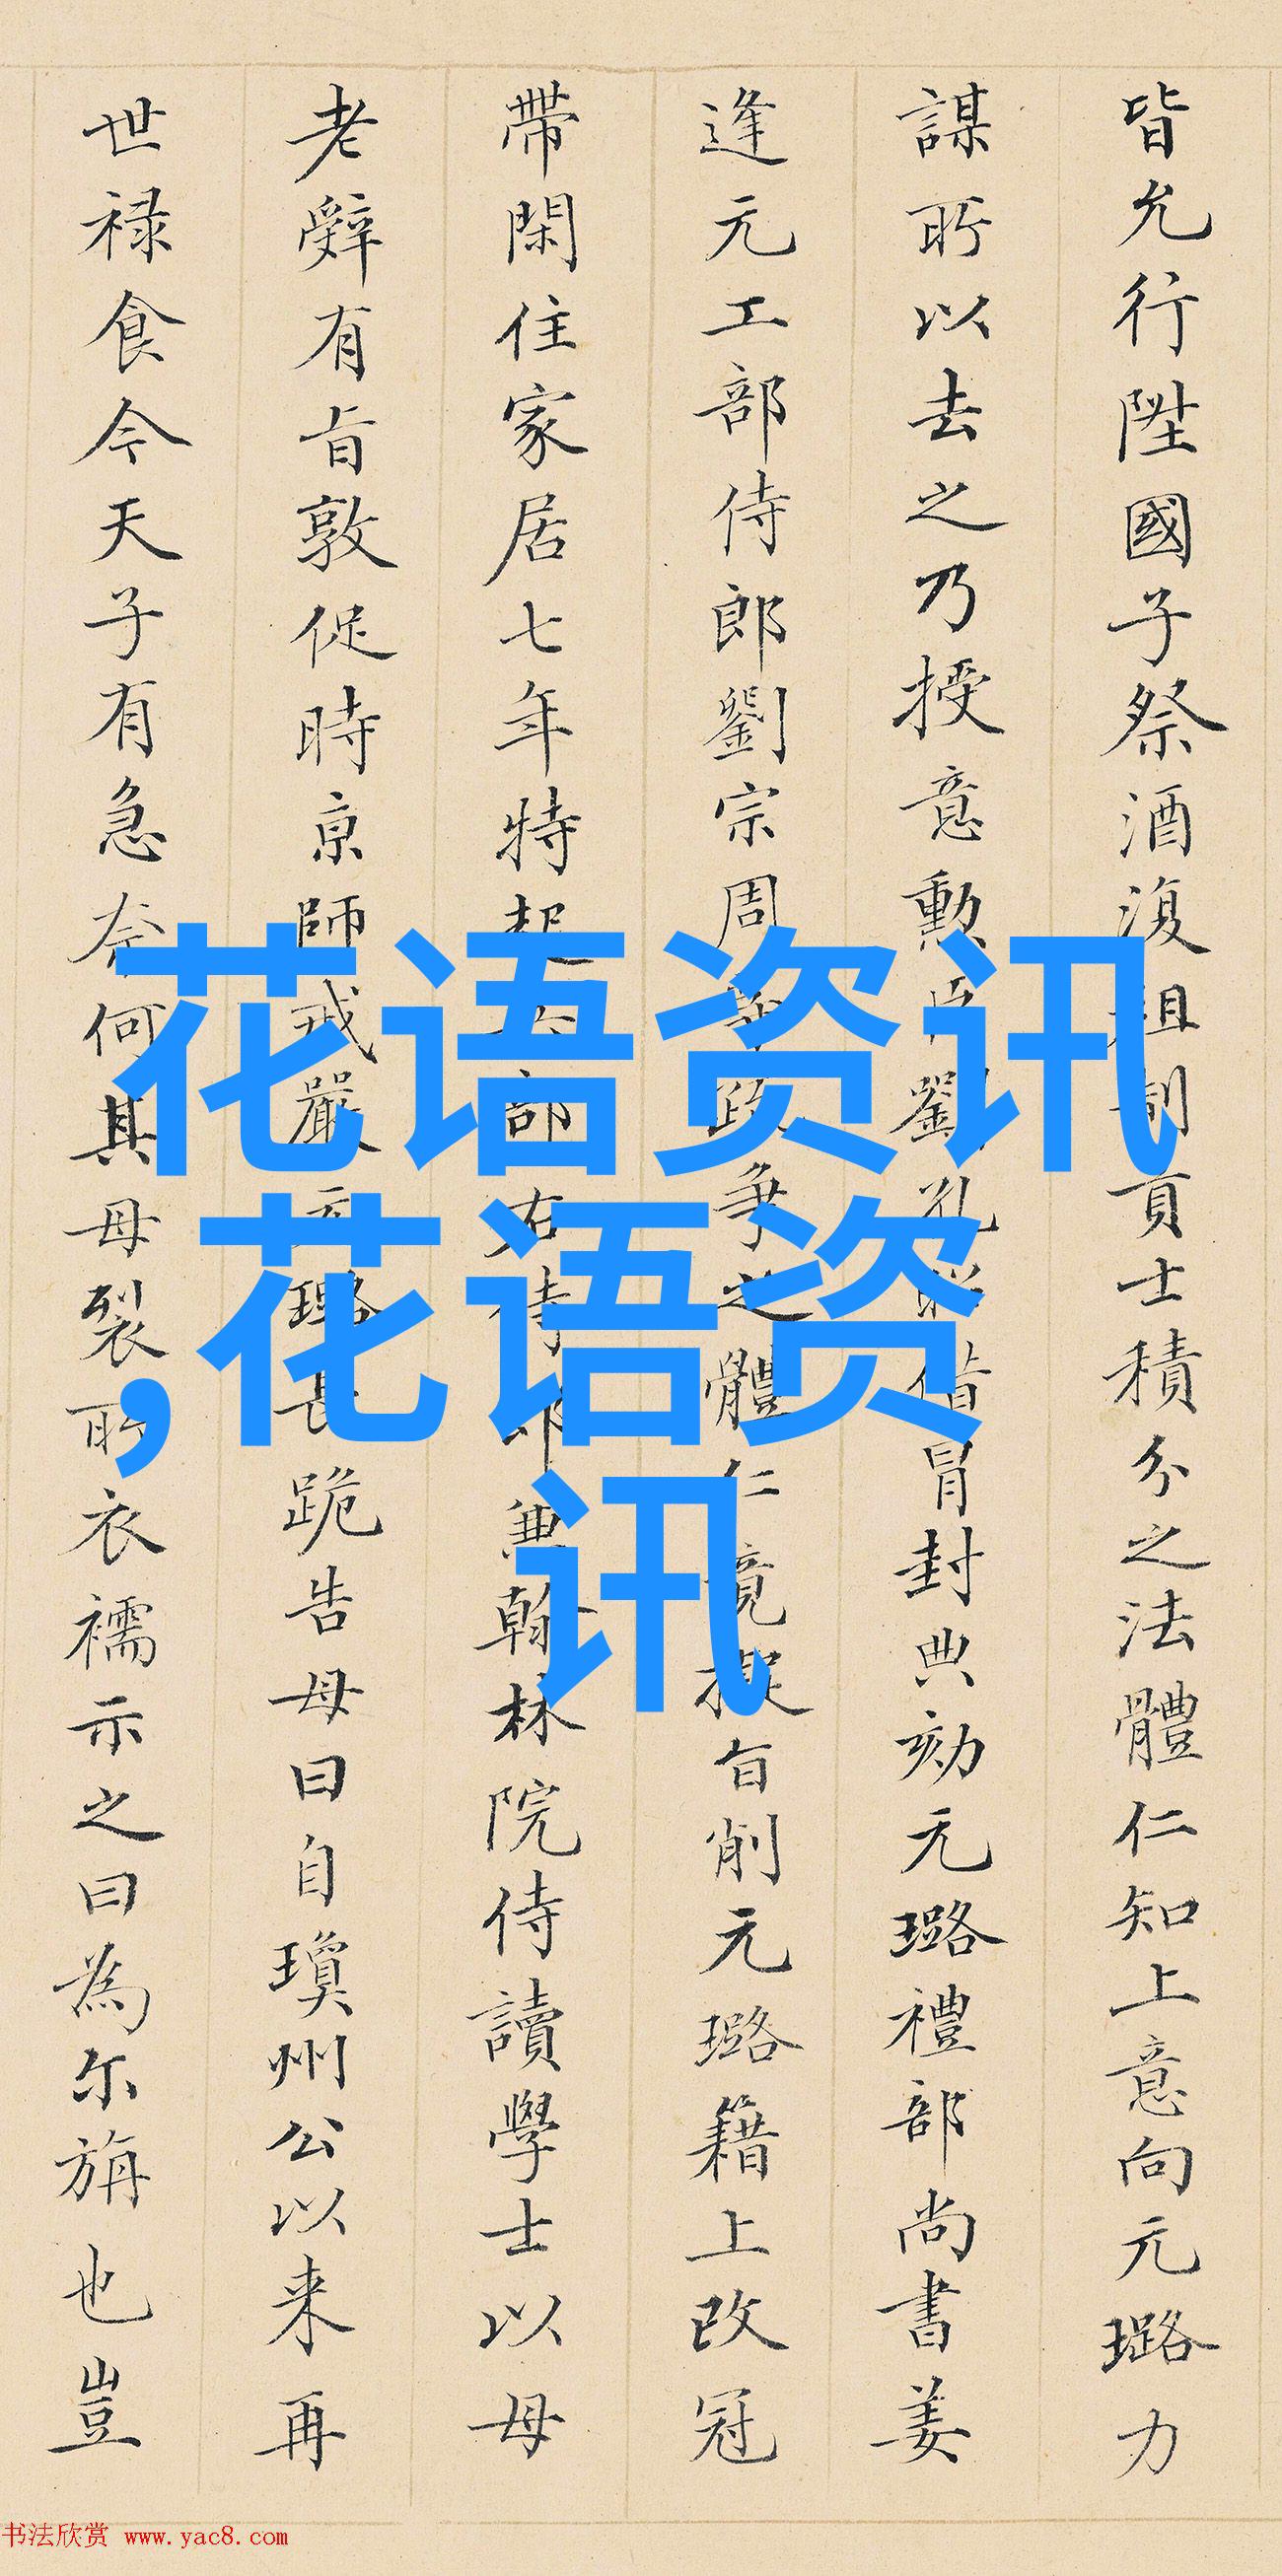 皆允行陞國子祭酒復祖制貢士積分之法體仁知上意向元璐力
謀所以去之乃授意勲臣劉孔昭偕冒封典劾元璐禮部尚書姜
逢元工部侍郎劉宗周政爭之體仁竟擬旨削元璐籍上改冠
帶閑住家居七年特起部右侍郎兼翰林院侍讀學士以母
老辭有旨敦促時京師戒嚴元璐長跪告母曰自瓊州公以来再
世禄食今天子有急奈何其母裂所衣襦示之曰為尔旃也豈
花语资讯
,花语资
讯
书法欣赏 www.yac8.com